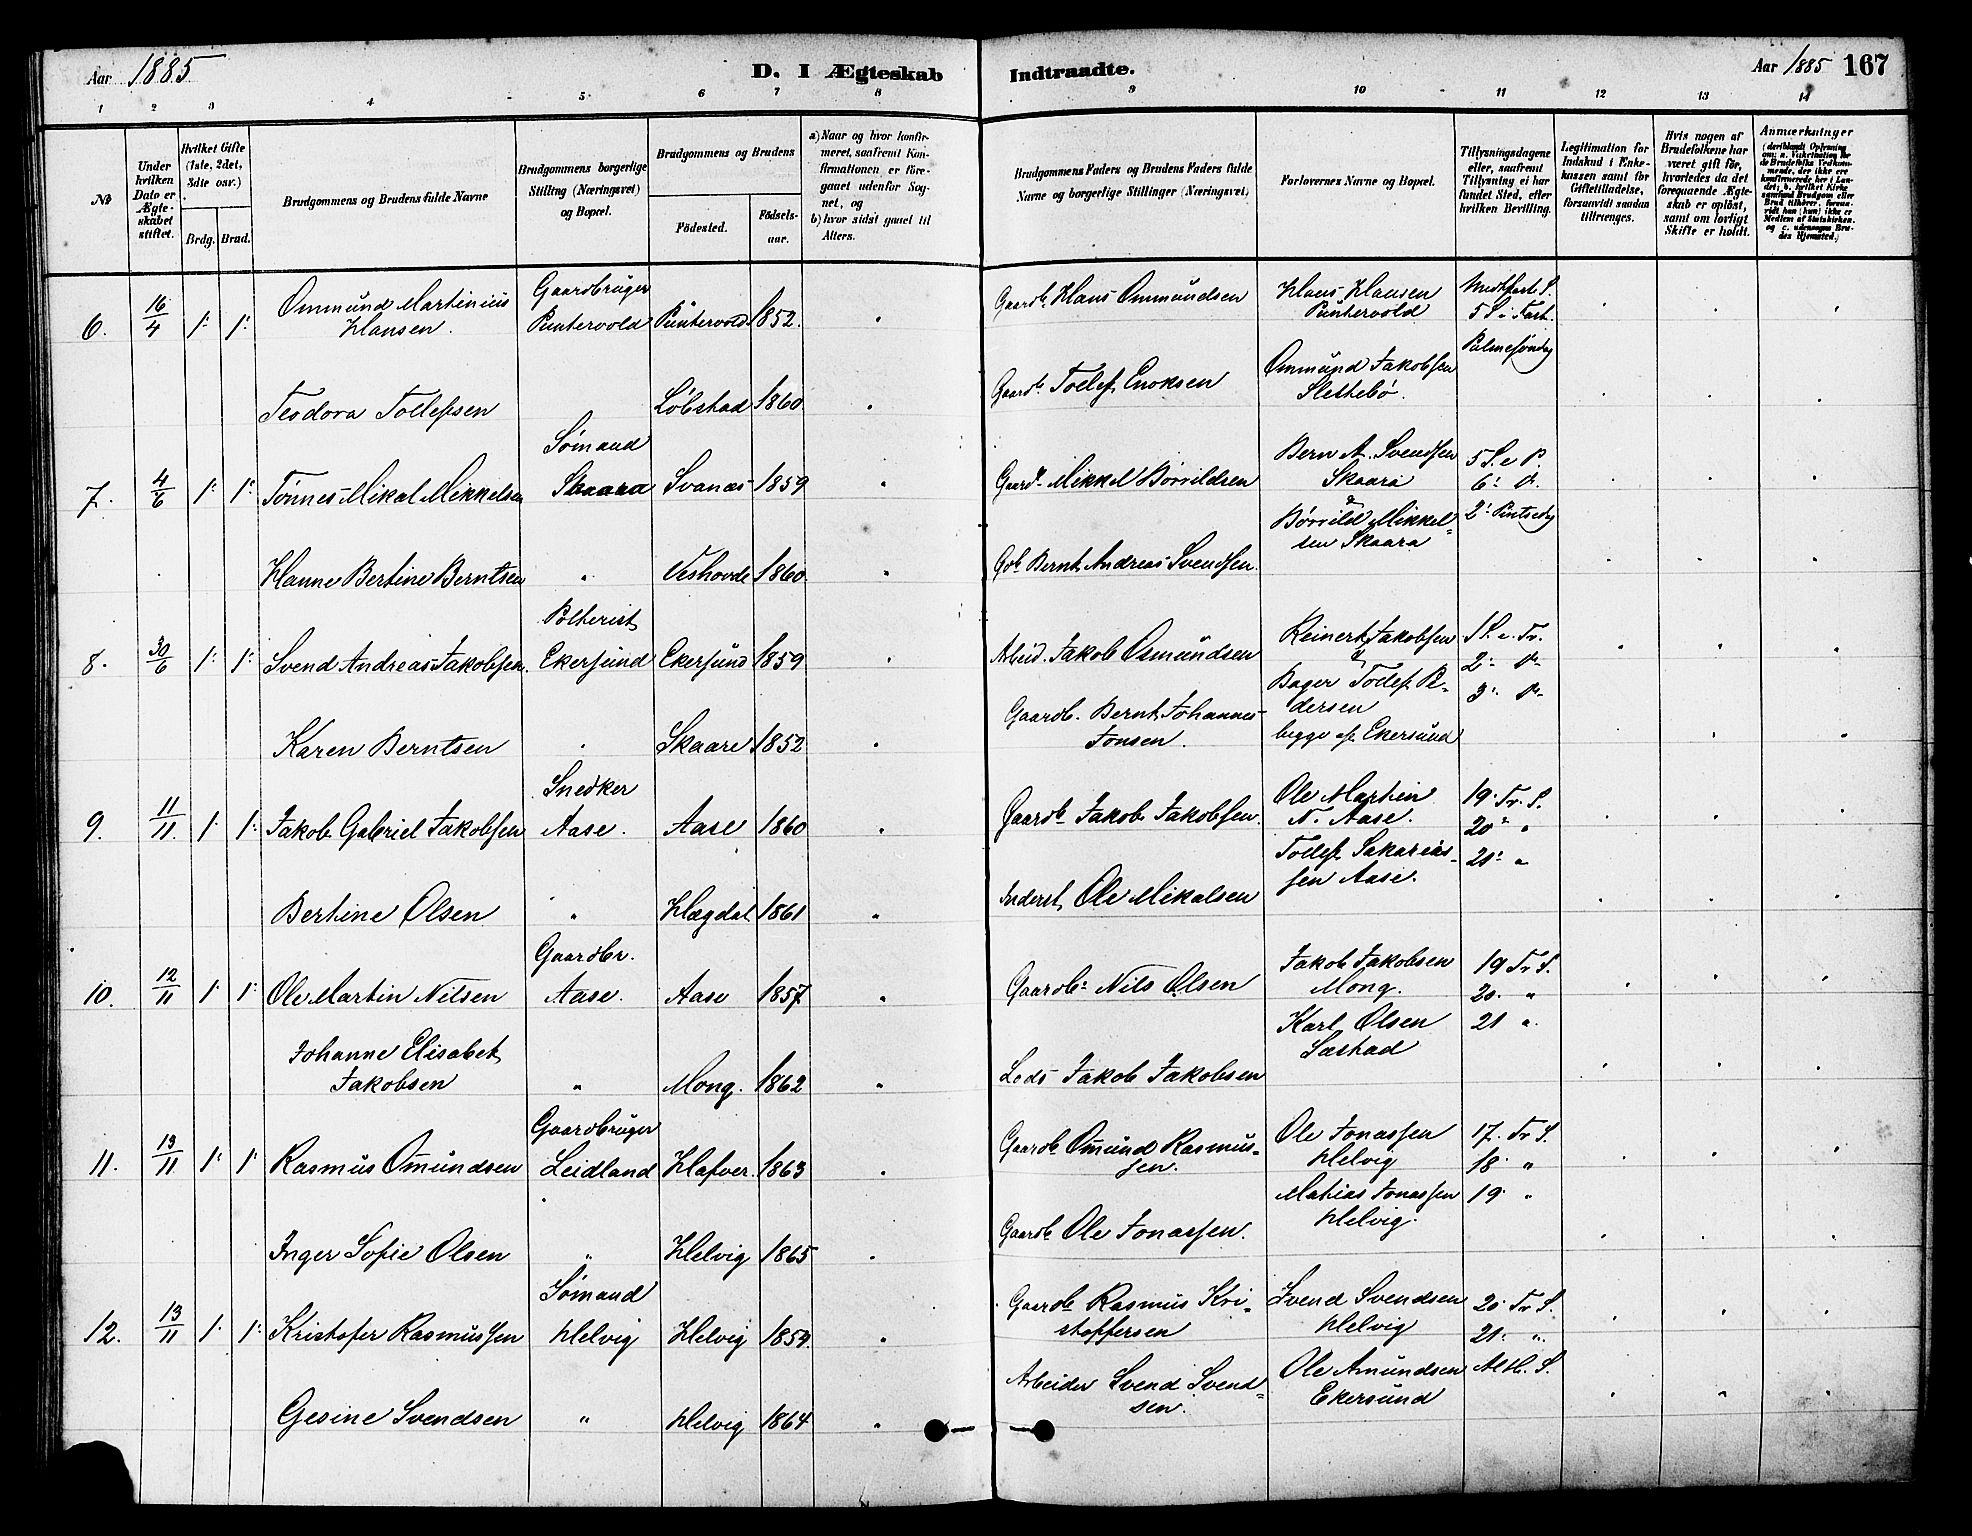 Aar 1885
D. I Ægteskab Indtraadte.
Aar 1885 167
1 2 3 4 5 6 7 8 9 10 11 12 13 14
№
Under hvilken Dato er Ægteskabet stiftet.
Hvilket Gifte (1ste, 2det, 3die osv.)
Brdg. Brud.
Brudgommens og Brudens fulde Navne
Brudgommens borgerlige Stilling (Næringsvei) og Bopæl.
Brudgommens og Brudens
Fødested.
Fødselsaar.
a) Naar og hvor konfirmeret, saafremt Konfirmationen er foregaaet udenfor Sognet, og
b) hvor sidst gaaet til Alters.
Brudgommens Faders og Brudens Faders fulde Navne og borgerlige Stillinger (Næringsvei)
Forlovernes Navne og Bopæl.
Tillysningsdagene eller, saafremt Tillysning ei har fundet Sted, efter hvilken Bevilling.
Legitimation for Indskud i Enkekassen samt for Giftetilladelse, forsaavidt saadan tiltrænges.
Hvis nogen af Brudefolkene har været gift før, hvorledes da det foregaaende Ægteskab er opløst, samt om lovligt Skifte er holdt.
Anmærkninger
6. 16/4 1: 1: Ommund Martinius Hansen. Gaardbruger Puntervold Puntervold 1852. " Gaardb. Hans Ommundsen Hans Hansen Puntervold Midfast S. 5 S. i Fast. Palmesøndag
Teodora Tollefsen Løbstad 1860 " Gaardb. Tollef Enoksen Ommund Jakobsen Slettebø.
7. 4/6 1: 1: Tønnes Mikal Mikkelsen Sømand Skaara Svanæs 1859 " Gaardb. Mikkel Børvildsen Bern A. Svendsen Skaara 5 S. e P. 6: d.
Børvild Mikkelsen Skaara 2: Pintsedag
Hanne Bertine Berntsen " Veshovde 1860 " Gb. Bernt Andreas Svendsen.
8. 30/6 1: 1: Svend Andreas Jakobsen Ekersund Ekersund 1859 " Arbeid. Jakob Osmundsen Reinert Jakobsen 1 S. e. Tr. 2: d. 3: d.
Bager Tollef Pedersen begge af Ekersund
Karen Berntsen " Skaare 1852 " Gaardb. Bernt Johannes Jonsen.
9. 11/11. 1: 1: Jakob Gabriel Jakobsen Snedker Aase. Aase 1860 " Gaardb. Jakob Jakobsen. Ole Martin N. Aase. 19. Tr. S. 20: " 21: "
Tollef Sakariassen Aase.
Bertine Olsen. " Hægdal 1861 " Inderst Ole Mikalsen
10. 12/11 1: 1: Ole Martin Nilsen Gaardbr. Aase. Aase 1857 " Gaardb: Nils Olsen Jakob Jakobsen Mong. 19 Tr. S. 20. " 21 "
Karl Olsen Sæstad
Johanne Elisabet Jakobsen " Mong. 1862 " Lods Jakob Jakobsen
11. 13/11 1: 1: Rasmus Omundsen Gaardbruger Leidland Hafver. 1863 " Gaardb Omund Rasmussen. Ole Jonassen Helvig 17. Tr. S. 18. " 19. "
Matias Jonassen Helvig.
Inger Sofie Olsen " Helvig 1865 " Gaardb Ole Jonassen.
12. 13/11 1: 1: Kristofer Rasmussen Sømand Helvig Helvig 1859. " Gaardb Rasmus Kristoffersen Svend Svendsen Helvig 20. Tr. S. 21. "
Gesine Svendsen " Helvig 1864 " Arbeider Svend Svendsen. Ole Amundsen Ekersund Alleh. S.